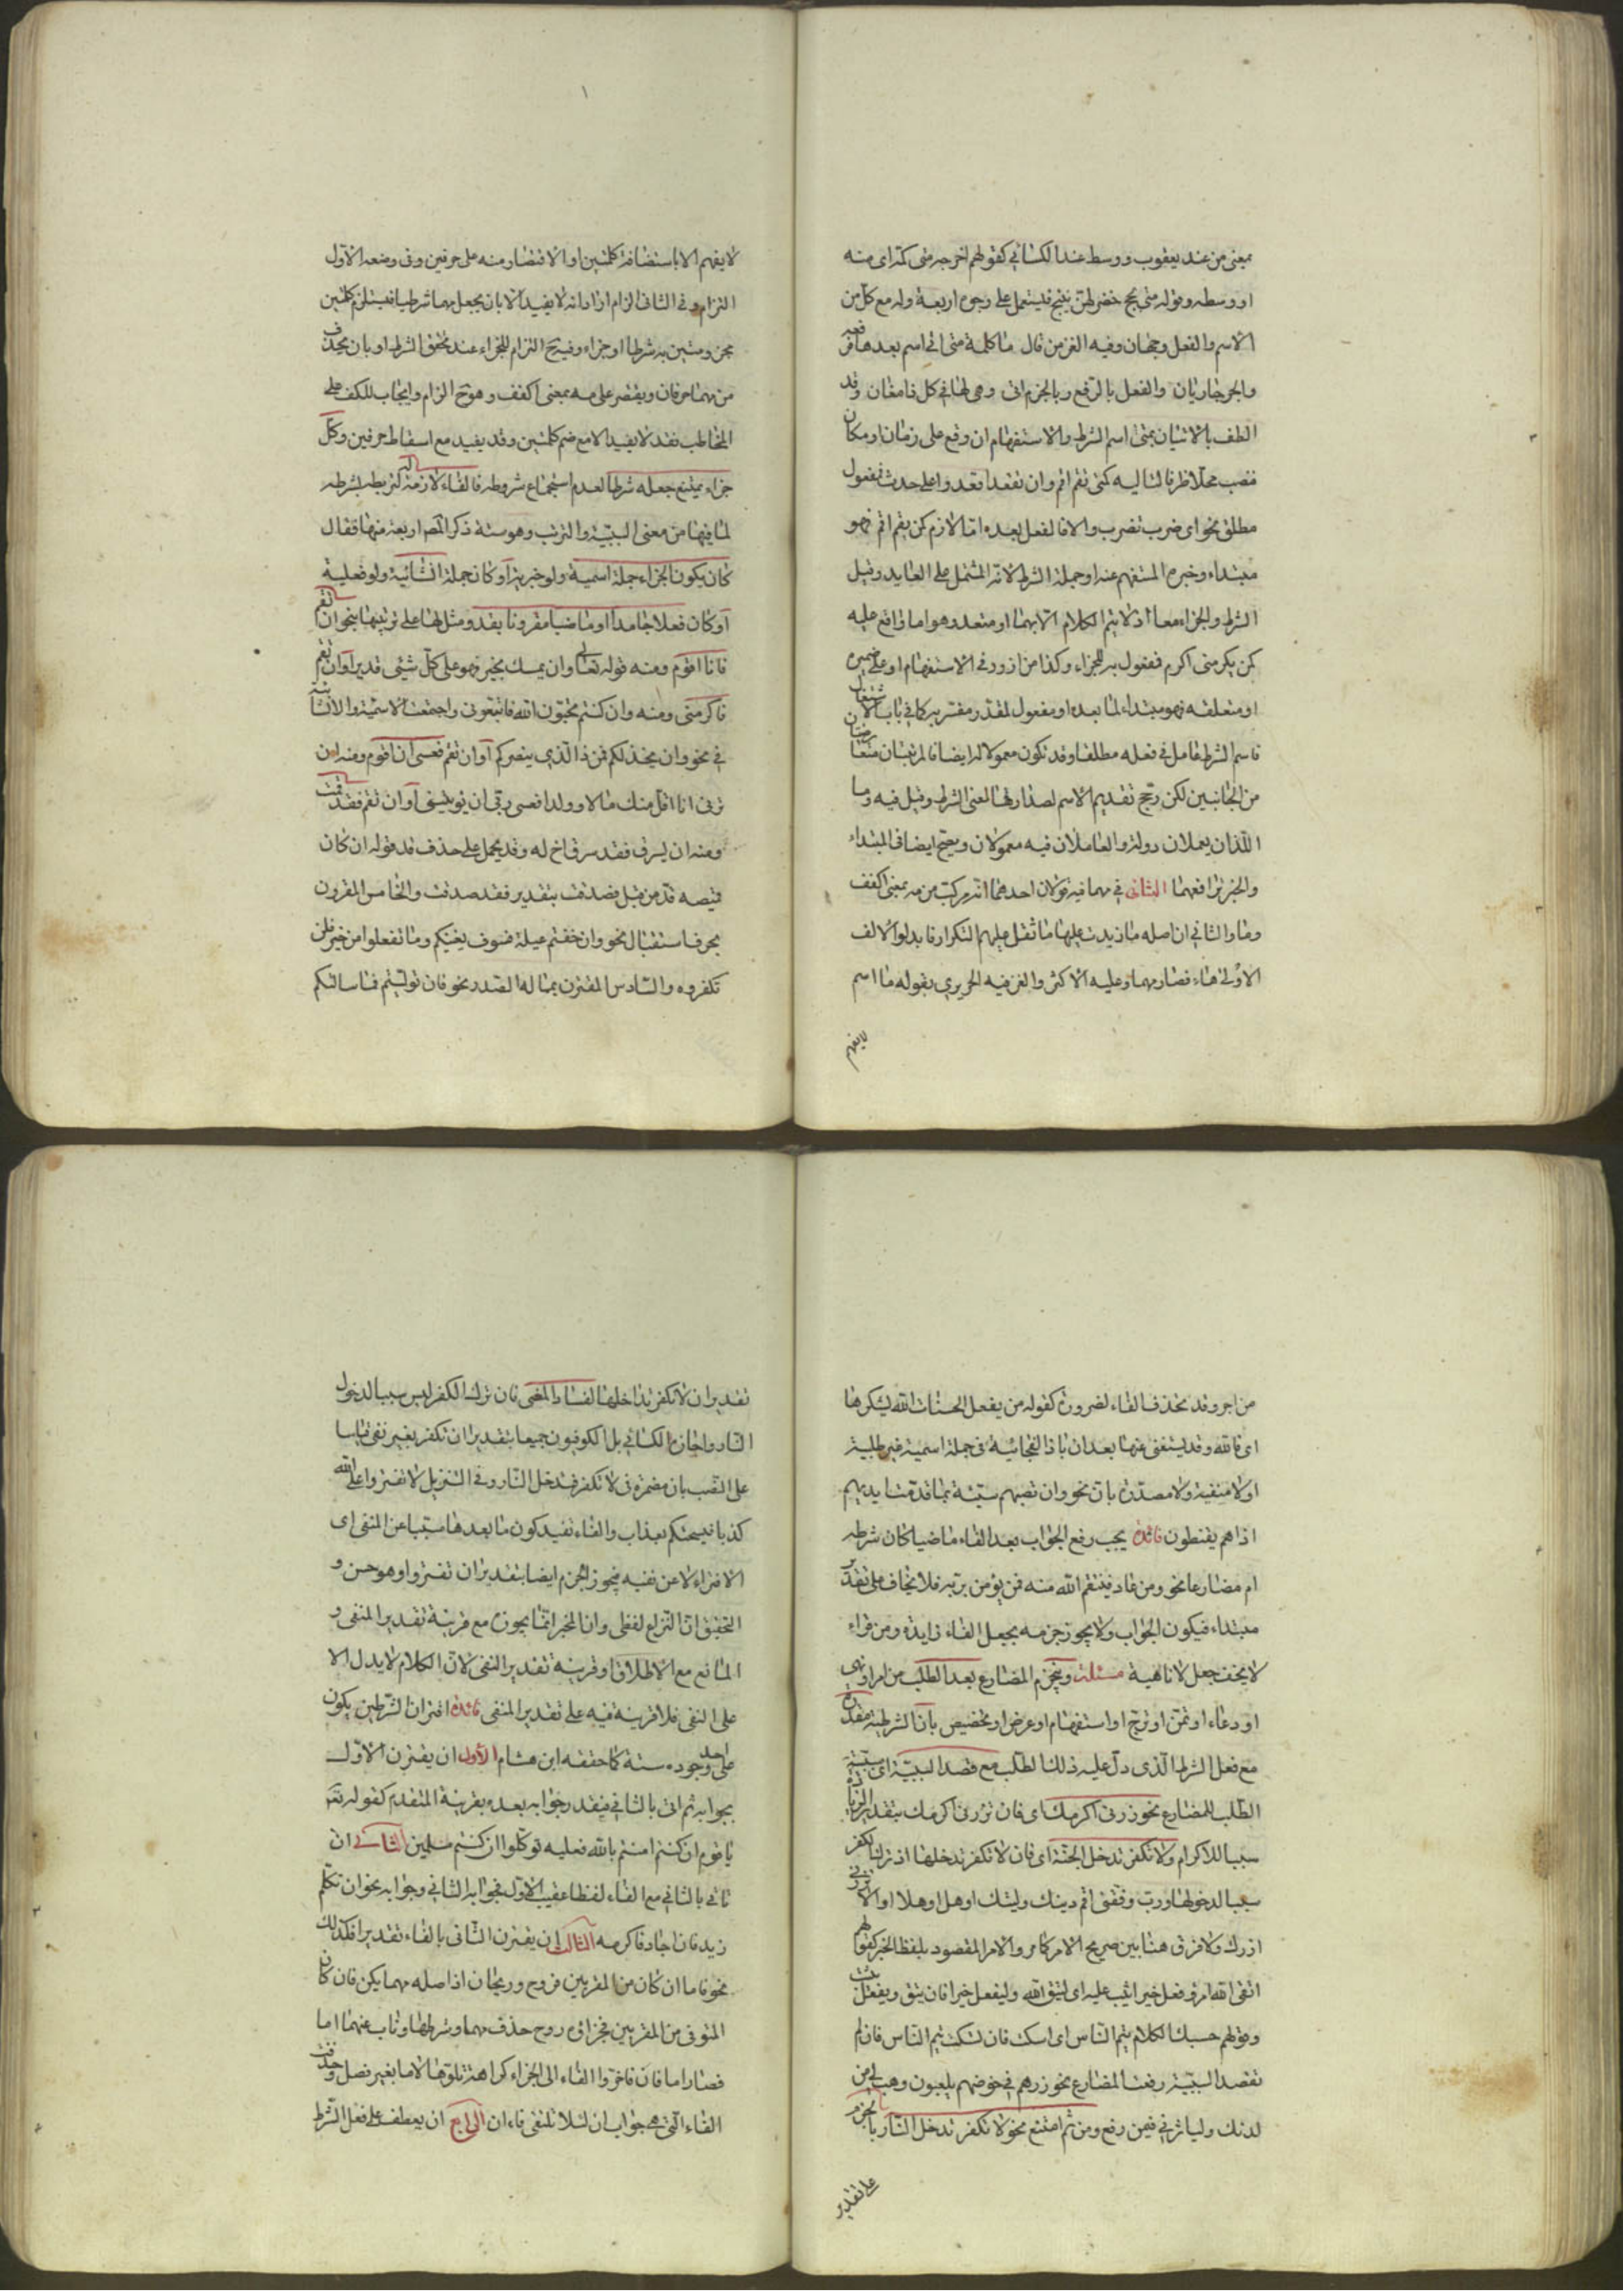 بمعنى من عند يعقوب ووسط عند الكسائي كقولهم اخرجه متى كمه اى منه
او وسطه وقوله متى لجج خضر لهن نئيج فيستعمل على وجوه اربعة وله مع كل من
الاسم والفعل وجهان وفيه الغز من قال ما كلمة متى اتى اسم بعدها فرفعه
والجر جاريان والفعل بالرفع وبالجزم اتى وهى لها في كل ذا معان وقد
الطف بالاتيان بمتى اسم الشرط والاستفهام ان وقع على زمان او مكان
فنصب محلا ظرفا لتاليه كمتى تقم اقم وان تفقد تقعد واعلى حدث فمفعول
مطلق نحو اى ضرب تضرب والا فالفعل بعده اما لازم كمن يقم اقم فهو
مبتداء وخبره المستفهم عنه او جملة الشرط لانه المشتمل على العايد وقيل
الشرط والجزاء معا اذ لا يتم الكلام الا بهما او متعد وهو اما واقع عليه
كمن يكرمنى اكرم فمفعول به للجزاء وكذا من ازور فى الاستفهام او على ضميره
او متعلقه فهو مبتداء لما بعده او مفعول لمقدر مفسر به كما في باب الاشتغال
فاسم الشرط عامل في فعله مطلقا وقد تكون معمولا له ايضا فالمرتبتان متعارضتان
من الجانبين لكن رجح تقديم الاسم لصدارتها لمعنى الشرط وقيل فيه وما
اللذان يعملان دولة والعاملان فيه معمولان ويصح ايضا فى المبتداء
والخبر ترافعهما الثانى في مهما فيه قولان احدهما انه مركب من مه بمعنى اكفف
وما والثاني ان اصله ما زيدت عليها ما ثقل عليهم التكرار فابدلوا الالف
الاولى هاء فصار مهما وعليه الاكثر والغز فيه الحريري بقوله ما اسم
لا يفهم
لا يفهم الا باستضافة كلمتين او الاقتصار منه على حرفين وفى وضعه الاول
التزام وفى الثانى الزام اراد انه لا يفيد الا بان يجعل مهما شرطيا فيستلزم كلمتين
مجزومتين به شرطا او جزاء وفيه ح التزام للجزاء عند تحقق الشرط او بان يحذف
من مهما حرفان ويقتصر على مه بمعنى اكفف وهو ح الزام وايجاب للكف على
المخاطب فقد لا يفيد الا مع ضم كلمتين وقد يفيد مع اسقاط حرفين وكل
جزاء يمتنع جعله شرطا لعدم استجماع شروطه فالفاء لازمة له لتربطه بشرطه
لما فيها من معنى السببية والترتب وهو ستة ذكر المصـ اربعة منها فقال
كان يكون الجزاء جملة اسمية ولو خبرية او كان جملة انشائية ولو فعلية
او كان فعلا جامدا او ماضيا مقرونا بقد ومثل لها على ترتيبها بنحو ان تقم
فانا اقوم ومنه قوله تعالى وان يمسك بخير فهو على كل شئى قدير او ان تقم
فاكرمنى ومنه وان كنتم تحبون الله فاتبعونى واجتمعت الاسمية والانشائية
في نحو وان يخذلكم فمن ذا الذي ينصركم او ان تقم فعسى ان اقوم ومنه ان
ترنى انا اقل منك مالا وولدا فعسى ربى ان يؤتين او ان تقم فقد قمت
ومنه ان يسرق فقد سرق اخ له وقد يحمل على حذف قد قوله ان كان
قميصه قد من قبل فصدقت بتقدير فقد صدقت والخامس المقرون
بحرف استقبال نحو وان خفتم عيلة فسوف يغنيكم وما تفعلوا من خير فلن
تكفروه والسادس المقترن بماله الصدر نحو فان توليتم فما سالتكم
من اجر وقد تحذف الفاء لضرورة كقوله من يفعل الحسنات الله يشكرها
اى فالله وقد يستغنى عنها بعد ان باذا الفجائية فى جملة اسمية غير طلبية
او لا منفية ولا مصدرة بان نحو وان تصبهم سيئة بما قدمت ايديهم
اذا هم يقنطون فائدة يجب رفع الجواب بعد الفاء ماضيا كان شرطه
ام مضارعا نحو ومن عاد فينتقم الله منه فمن يؤمن بربه فلا يخاف على تقدير
مبتداء فيكون الجواب ولا يجوز جزمه بجعل الفاء زايدة ومن قراء
لا يخف جعل لا ناهية مسئلة وينجزم المضارع بعد الطلب من امر او نهى
او دعاء او تمن او ترج او استفهام او عرض او تحضيض بان الشرطية مقدرة
مع فعل الشرط الذى دل عليه ذلك الطلب مع قصد السببية اى سببية
الطلب للمضارع نحو زرنى اكرمك اى فان تزرنى اكرمك بتقدير الزيارة
سببا للاكرام ولا تكفر تدخل الجنة اى فان لا تكفر تدخلها اذ ترك الكفر
سببا لدخولها ورب وفقنى اقم دينك وليتك او هل او هلا او الا تزرنى
ازرك ولا فرق هنا بين صريح الامر كما مر والامر المقصود بلفظ الخبر كقولهم
اتقى الله امرؤ فعل خيرا يثب عليه اى ليتق الله وليفعل خيرا فان يتق ويفعل يثب
وقولهم حسبك الكلام ينم الناس اى اسكت فان تسكت ينم الناس فان لم
تقصد السببية رفعت المضارع نحو ذرهم في خوضهم يلعبون وهب لى من
لدنك وليا يرثنى فيمن رفع ومن ثم امتنع نحو لا تكفر تدخل النار بالجزم
على تقدير
تقدير ان لا تكفر تداخلها لفساد المعنى فان ترك الكفر ليس سببا لدخول
النار واجازه الكسائي بل الكوفيون جميعا بتقدير ان تكفر بغير نفى قياسا
على النصب بان مضمرة فى لا تكفر فتدخل النار وفى التنزيل لا تفتروا على الله
كذبا فيسحتكم بعذاب والفاء تفيد كون ما بعدها مسببا عن المنفى اى
الافتراء لا عن نفيه فيجوز الجزم ايضا بتقدير ان تفتروا وهو حسن و
التحقيق ان النزاع لفظى وان المخبر انما يجوزه مع قرينة تقدير المنفى و
المانع مع الاطلاق او قرينة تقدير النفى لان الكلام لا يدل الا
على النفى فلا قرينة فيه على تقدير المنفى فائدة اقتران الشرطين يكون
على احد وجوه ستة كما حققه ابن هشام الاول ان يقترن الاول
بجوابه ثم اتى بالثاني فيقدر جوابه بعده بقرينة المتقدم كقوله تعـ
يا قوم ان كنتم امنتم بالله فعليه توكلوا ان كنتم مسلمين الثانى ان
تاتى بالثاني مع الفاء لفظا عقيب الاول فجوابه الثاني وجوابه نحو ان تكلم
زيد فان اجاد فاكرمه الثالث ان يقترن الثانى بالفاء تقديرا فكذلك
نحو فاما ان كان من المقربين فروح وريحان اذ اصله مهما يكن فان كان
المتوفى من المقربين فجزاؤه روح حذف مهما وشرطها وناب عنهما اما
فصار اما فان فاخروا الفاء الى الجزاء كراهة تلوها لاما بغير فصل وحذفت
الفاء التى هى جواب ان لئلا تلتقى فاءان الرابع ان يعطف على فعل الشرط